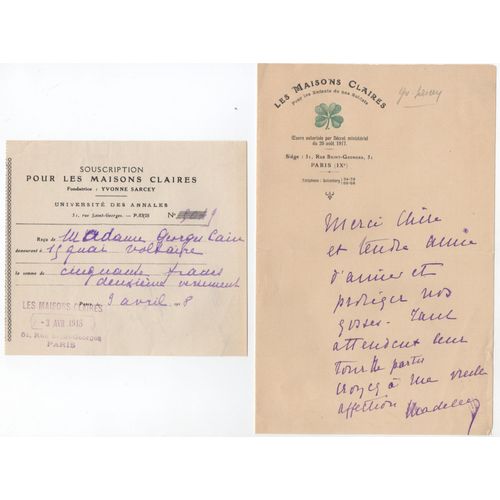 SOUSCRIPTION
POUR LES MAISONS CLAIRES
Fondatrice : YVONNE SARCEY
UNIVERSITÉ DES ANNALES
51, rue Saint-Georges. - PARIS
N°
Reçu de Madame Georges Cain
demeurant à 15 quai Voltaire
la somme de cinquante francs
deuxième versement
Paris 3 avril 1918
LES MAISONS CLAIRES
-3 AVR 1918
51, Rue St-Georges
PARIS
LES MAISONS CLAIRES
Pour les Enfants de nos Soldats
Yv. Sarcey
Œuvre autorisée par Décret ministériel
du 20 août 1917.
Siège : 51, Rue Saint-Georges, 51
PARIS (IXe)
Téléphone : Gutenberg
Merci Chère
et tendre amie
d'aimer et
protéger nos
gosses. Tant
attendent leur
tour de partir
croyez à ma vieille
affection